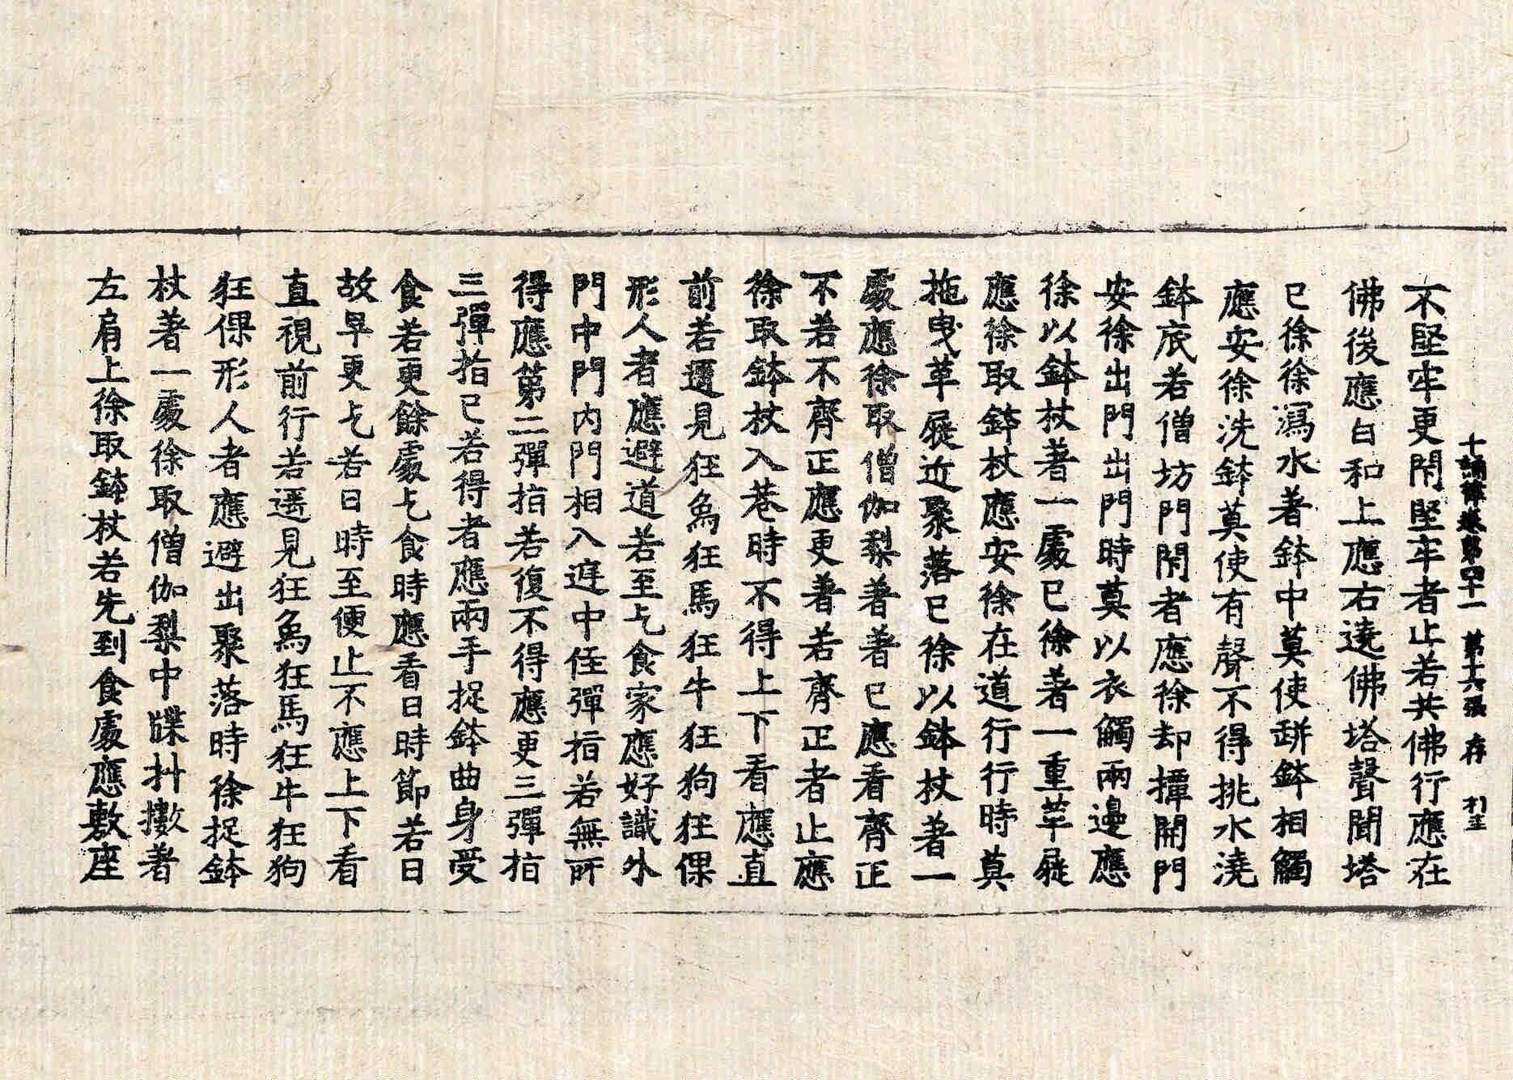 十誦律卷第四十一　第十六張　存
不堅牢更閇堅牢者止若共佛行應在
佛後應白和上應右遶佛塔聲聞塔
已徐徐瀉水著鉢中莫使缾鉢相觸
應安徐洗鉢莫使有聲不得挑水澆
鉢底若僧坊門閇者應徐却撢開門
安徐出門出門時莫以衣觸兩邊應
徐以鉢杖著一處已徐著一重革屣
應徐取鉢杖應安徐在道行行時莫
拖曳革屣近聚落已徐以鉢杖著一
處應徐取僧伽梨著著已應看齊正
不若不齊正應更著若齊正者止應
徐取鉢杖入巷時不得上下看應直
前若遥見狂象狂馬狂牛狂狗狂倮
形人者應避道若至乞食家應好識外
門中門內門相入庭中侄彈指若無所
得應第二彈指若復不得應更三彈指
三彈指已若得者應兩手捉鉢曲身受
食若更餘處乞食時應看日時節若日
故早更乞若日時至便止不應上下看
直視前行若遥見狂象狂馬狂牛狂狗
狂倮形人者應避出聚落時徐捉鉢
杖著一處徐取僧伽梨中牒抖擻著
左肩上徐取鉢杖若先到食處應敷座